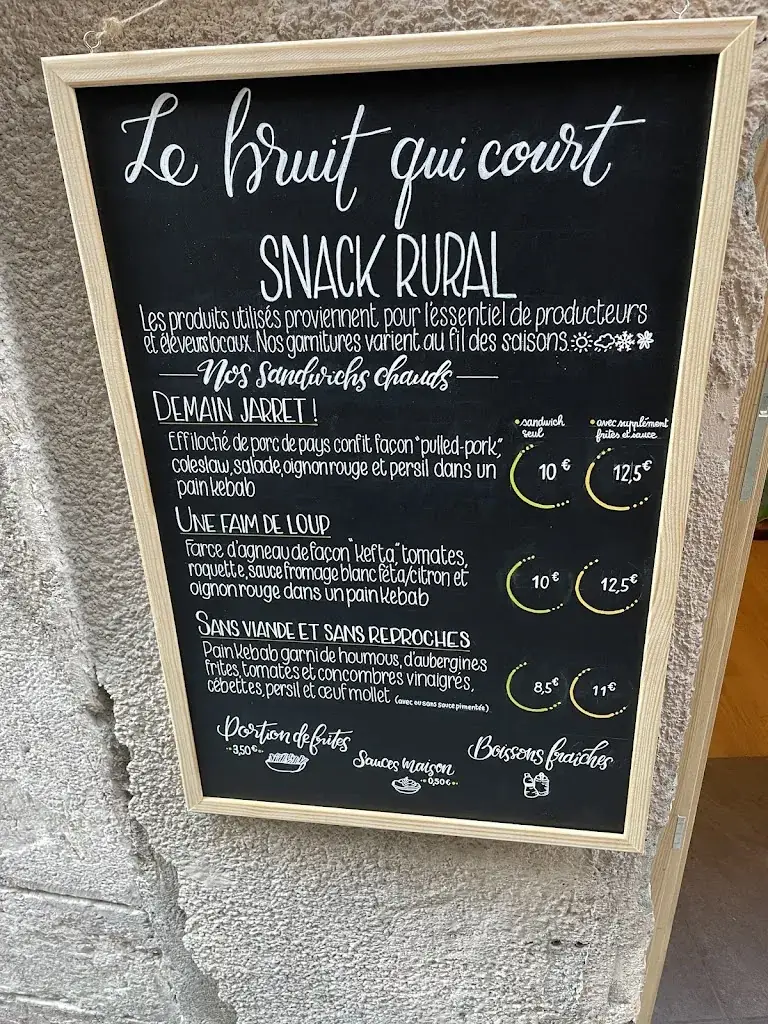 Le bruit qui court
SNACK RURAL
Les produits utilisés proviennent pour l'essentiel de producteurs
et éleveurs locaux. Nos garnitures varient au fil des saisons.
Nos sandwichs chauds
DEMAIN JARRET !
• sandwich seul
• avec supplément frites et sauce
Effiloché de porc de pays confit façon "pulled-pork",
coleslaw, salade, oignon rouge et persil dans un
pain kebab
10 €
12,5€
UNE FAIM DE LOUP
Farce d'agneau de façon "kefta", tomates,
roquette, sauce fromage blanc féta/citron et
oignon rouge dans un pain kebab
10 €
12,5€
SANS VIANDE ET SANS REPROCHES
Pain kebab garni de houmous, d'aubergines
frites, tomates et concombres vinaigrés,
cébettes, persil et œuf mollet (avec ou sans sauce pimentée)
8,5€
11€
Portion de frites
3,50€
Sauces maison
0,50€
Boissons fraîches